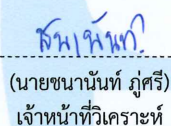 ชนานันท์
(นายชนานันท์ ภู่ศรี)
เจ้าหน้าที่วิเคราะห์